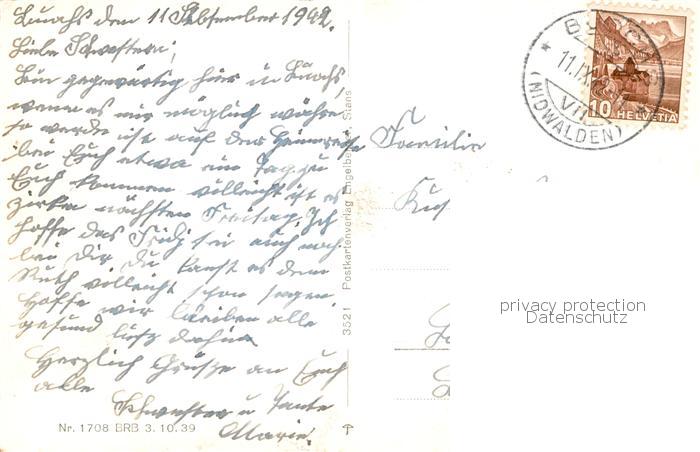 Buochs den 11 September 1942.
Liebe Schwestern;
Bin gegenwärtig hier in Buochs
wenn es mir möglich währe
so werde ich auf der Heimreise
bei Euch etwa ein Tag zu
Euch kommen villeicht ist es
zirka nächsten Freitag. Ich
hoffe das Fridj sei auch noch
bei Dir du kanst es dem
Ruth villeicht schon sagen.
Hoffe wir bleiben alle
gesund
Herzlich Grüsse an Euch
alle
Schwester u Tante
Marie.
Nr. 1708 BRB 3. 10. 39
3521 Postkartenverlag Engelberger, Stans
Familie
BUOCHS
11.IX
(NIDWALDEN)
10 HELVETIA
privacy protection
Datenschutz